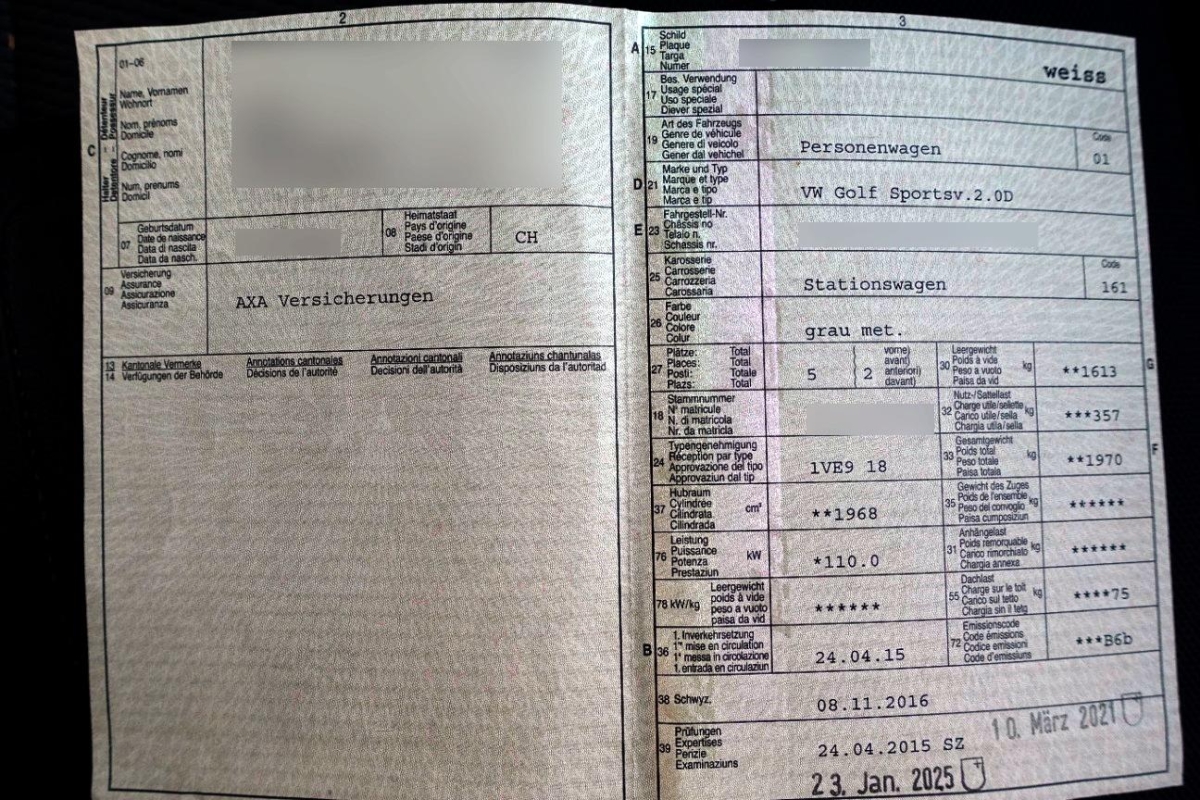 2
01-06
Name, Vornamen
Wohnort
Nom, prénoms
Domicile
Cognome, nomi
Domicilio
Num, prenums
Domicil
C
Halter – Détenteur
Detentore – Possessur
07
Geburtsdatum
Date de naissance
Data di nascita
Data da nasch.
08
Heimatstaat
Pays d'origine
Paese d'origine
Stadi d'origin
CH
09
Versicherung
Assurance
Assicurazione
Assicuranza
AXA Versicherungen
13 Kantonale Vermerke Annotations cantonales Annotazioni cantonali Annotaziuns chantunalas
14 Verfügungen der Behörde Décisions de l'autorité Decisioni dell'autorità Disposiziuns da l'autoritad
3
A 15
Schild
Plaque
Targa
Numer
weiss
17
Bes. Verwendung
Usage spécial
Uso speciale
Diever spezial
19
Art des Fahrzeugs
Genre de véhicule
Genere di veicolo
Gener dal vehichel
Personenwagen
Code
01
D 21
Marke und Typ
Marque et type
Marca e tipo
Marca e tip
VW Golf Sportsv.2.0D
E 23
Fahrgestell-Nr.
Châssis no
Telaio n.
Schassis nr.
25
Karosserie
Carrosserie
Carrozzeria
Carossaria
Stationswagen
Code
161
26
Farbe
Couleur
Colore
Colur
grau met.
27
Plätze: Total
Places: Total
Posti: Totale
Plazs: Total
5 ( 2
vorne)
avant)
anteriori)
davant)
30
Leergewicht
Poids à vide
Peso a vuoto
Paisa da vid
kg
**1613
G
18
Stammnummer
N° matricule
N. di matricola
Nr. da matricla
32
Nutz-/Sattellast
Charge utile/sellette
Carico utile/sella
Chargia utila/sella
kg
***357
24
Typengenehmigung
Réception par type
Approvazione del tipo
Approvaziun dal tip
1VE9 18
33
Gesamtgewicht
Poids total
Peso totale
Paisa totala
kg
**1970
F
37
Hubraum
Cylindrée
Cilindrata
Cilindrada
cm³
**1968
35
Gewicht des Zuges
Poids de l'ensemble
Peso del convoglio
Paisa cumposiziun
kg
******
76
Leistung
Puissance
Potenza
Prestaziun
kW
*110.0
31
Anhängelast
Poids remorquable
Carico rimorchiato
Chargia annexa
kg
******
78 kW/kg
Leergewicht
poids à vide
peso a vuoto
paisa da vid
******
55
Dachlast
Charge sur le toit
Carico sul tetto
Chargia sin il tetg
kg
****75
B 36
1. Inverkehrsetzung
1re mise en circulation
1a messa in circolazione
1. entrada en circulaziun
24.04.15
72
Emissionscode
Code émissions
Codice emissioni
Code d'emissiuns
***B6b
38 Schwyz.
08.11.2016
10. März 2021
39
Prüfungen
Expertises
Perizie
Examinaziuns
24.04.2015 SZ
23. Jan. 2025